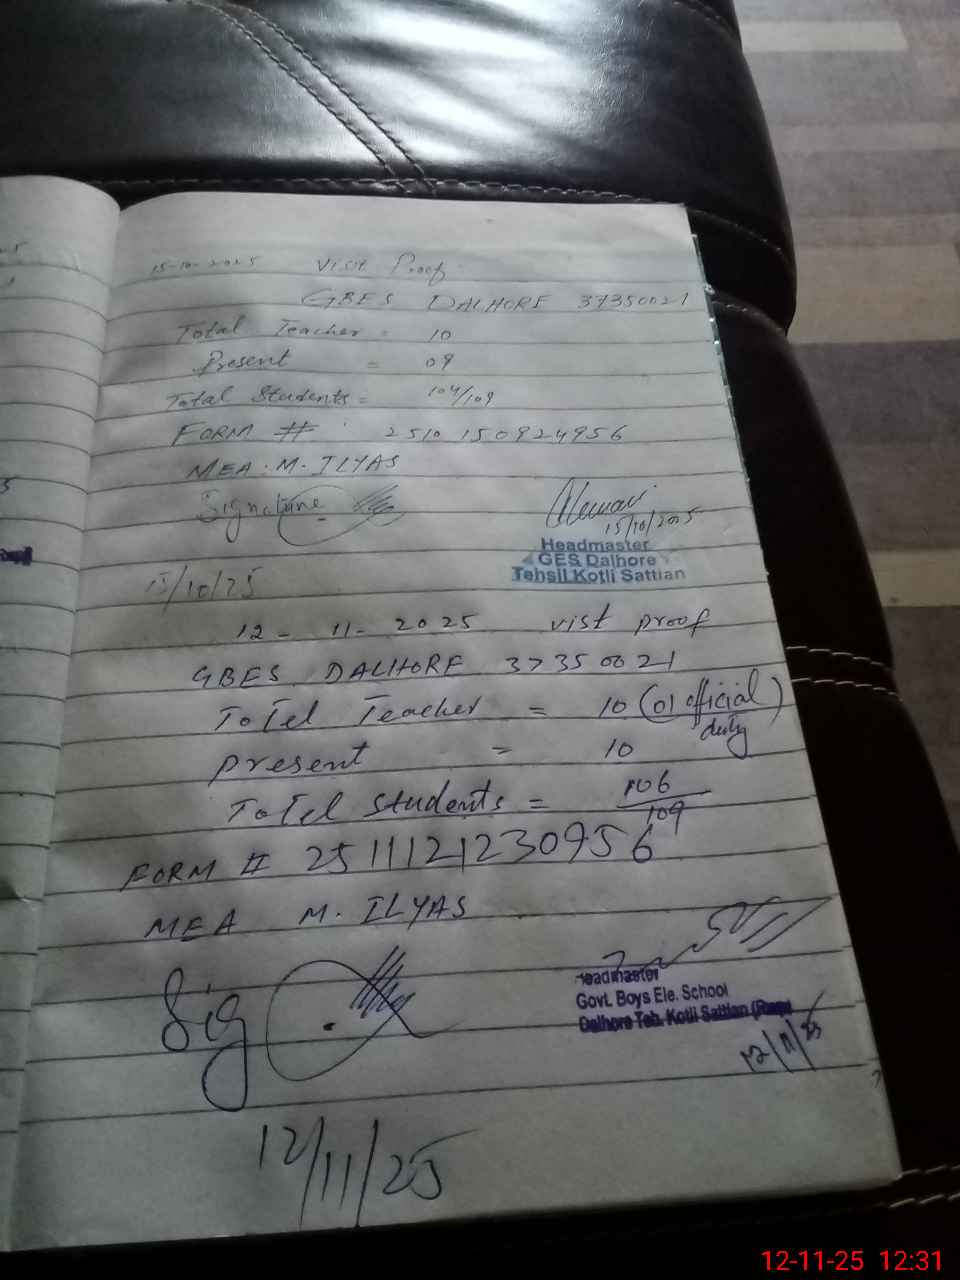 15-10-2025 Visit Proof
GBES DALHORE 37350021
Total Teacher = 10
Present = 09
Total Students = 104/109
FORM # 2510 150924956
MEA. M. ILYAS
Signature
15/10/2025
Headmaster
GES Dalhore
Tehsil Kotli Sattian
15/10/25
12-11-2025 vist proof
GBES DALHORE 37350021
Totel Teacher = 10 (01 official duty)
present = 10
Totel students = 106/109
FORM # 2511121230956
MEA M. ILYAS
Sig
Headmaster
Govt. Boys Ele. School
Dalhore Teh. Kotli Sattian
12/11/25
12/11/25
12-11-25 12:31